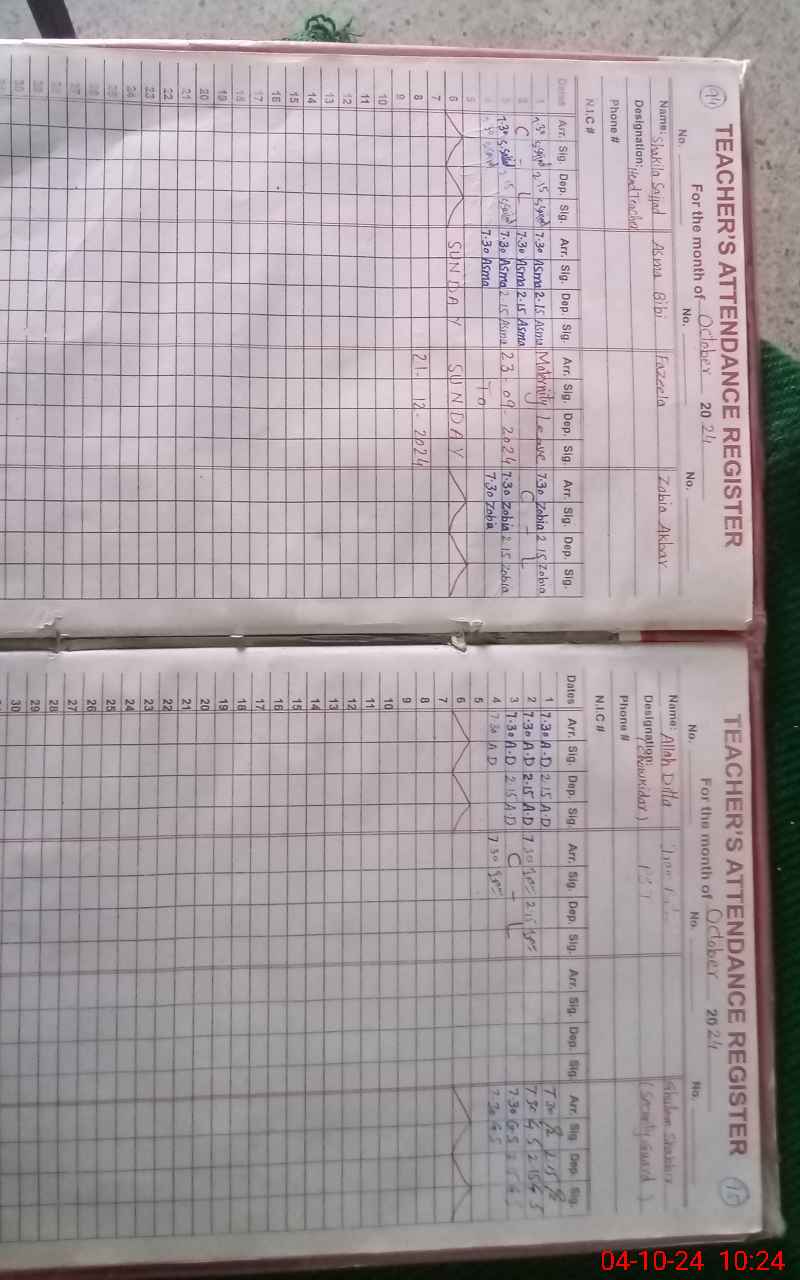 94
TEACHER'S ATTENDANCE REGISTER
For the month of October 2024
No. No. No.
Name: Shakila Sajjad Asma Bibi Fazeela Zobia Akbar
Designation: Head Teacher
Phone #
N.I.C #
Dates Arr. Sig. Dep. Sig. Arr. Sig. Dep. Sig. Arr. Sig. Dep. Sig. Arr. Sig. Dep. Sig.
1 7.30 2.15 7.30 Asma 2.15 Asma Maternity Leave 7.30 Zobia 2.15 Zobia
2 C - L 7.30 Asma 2.15 Asma C - L
3 7.30 2.15 7.30 Asma 2.15 Asma 23-09-2024 7.30 Zobia 2.15 Zobia
4 7.30 7.30 Asma To 7.30 Zobia
5
6 SUNDAY SUNDAY
7
8 21-12-2024
9
10
11
12
13
14
15
16
17
18
19
20
21
22
23
24
25
26
27
28
29
30
TEACHER'S ATTENDANCE REGISTER
15
For the month of October 2024
No. No. No.
Name: Allah Ditta Ghulam Shabbir
Designation: (Chowkidar) (Security Guard)
Phone #
N.I.C #
Dates Arr. Sig. Dep. Sig. Arr. Sig. Dep. Sig. Arr. Sig. Dep. Sig. Arr. Sig. Dep. Sig.
1 7.30 A.D 2.15 A.D 7.30 2.15
2 7.30 A.D 2.15 A.D 7.30 2.15 7.30 G S 2.15 G S
3 7.30 A.D 2.15 A.D C - L 7.30 G S 2.15 G S
4 7.30 A.D 7.30 7.30 G S
5
6
7
8
9
10
11
12
13
14
15
16
17
18
19
20
21
22
23
24
25
26
27
28
29
30
04-10-24 10:24